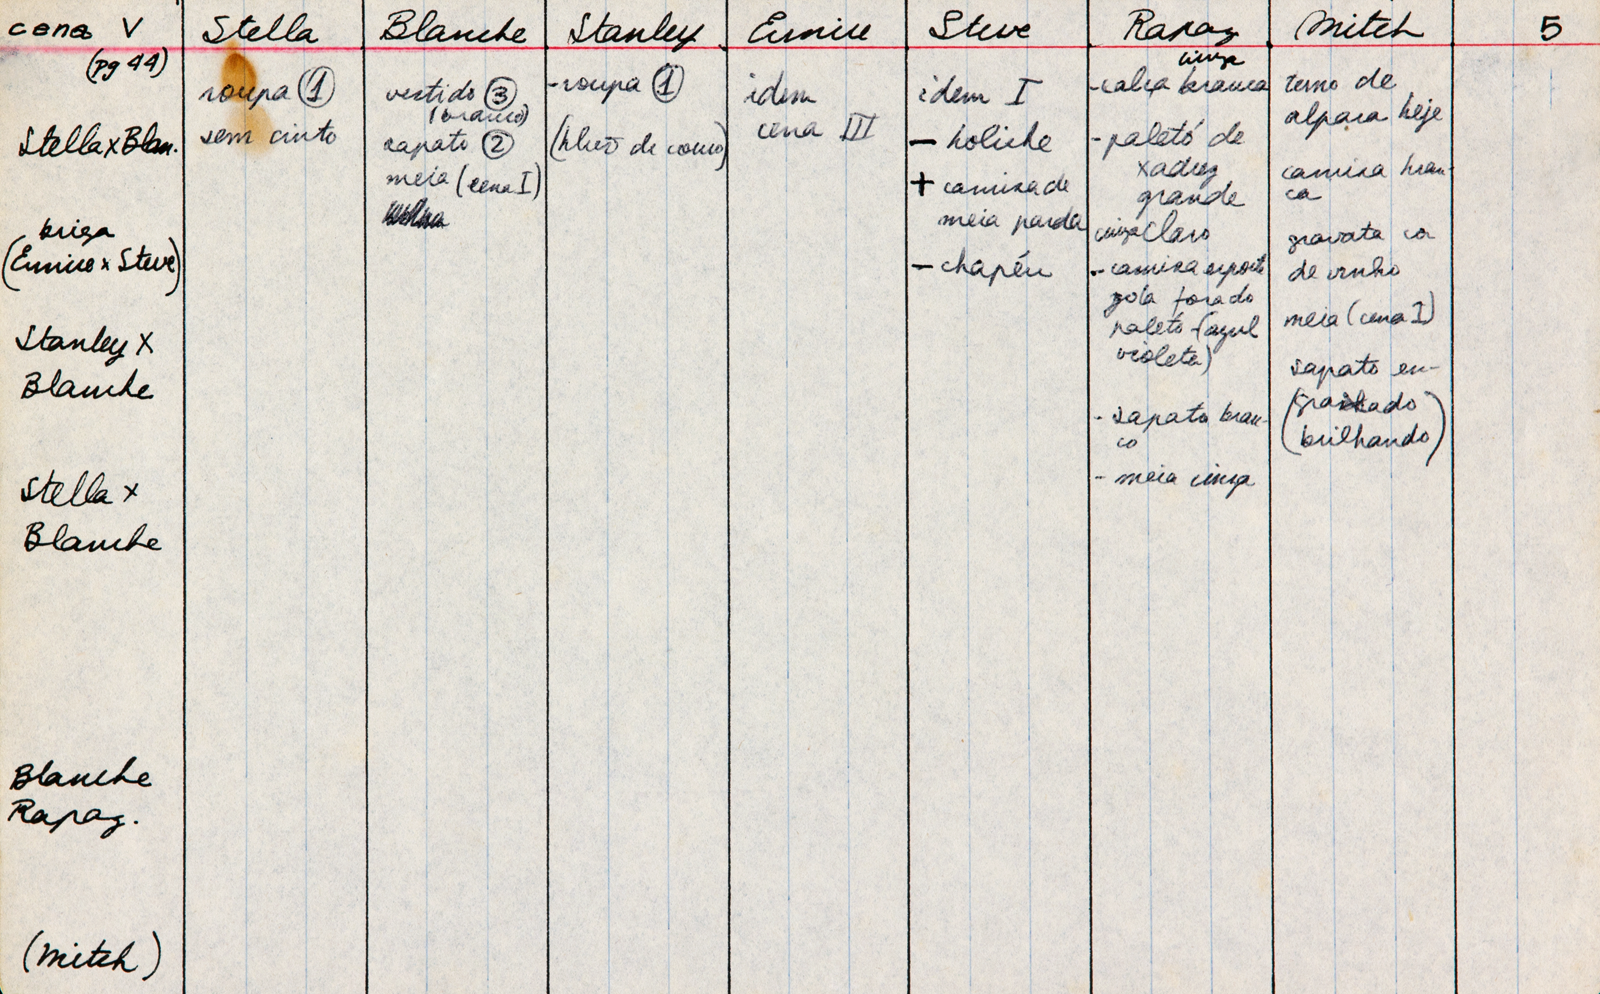 cena V
(pg 44)
Stella x Blan.
briga
(Eunice x Steve)
Stanley x
Blanche
Stella x
Blanche
Blanche
Rapaz.
(Mitch)
Stella
roupa ①
sem cinto
Blanche
vestido ③
(branco)
sapato ②
meia (cena I)
Stanley
- roupa ①
(de couro)
Eunice
idem
cena III
Steve
idem I
- boliche
+ camisa de
meia parda
- chapéu
Rapaz
cinza
- calça branca
- paletó de
xadrez
grande
cinza claro
- camisa esporte
gola
paletó - (azul
violeta)
- sapato bran-
co
- meia cinza
Mitch
terno de
alpaca beje
camisa bran-
ca
gravata cor
de vinho
meia (cena I)
sapato en-
(graxado
brilhando)
5